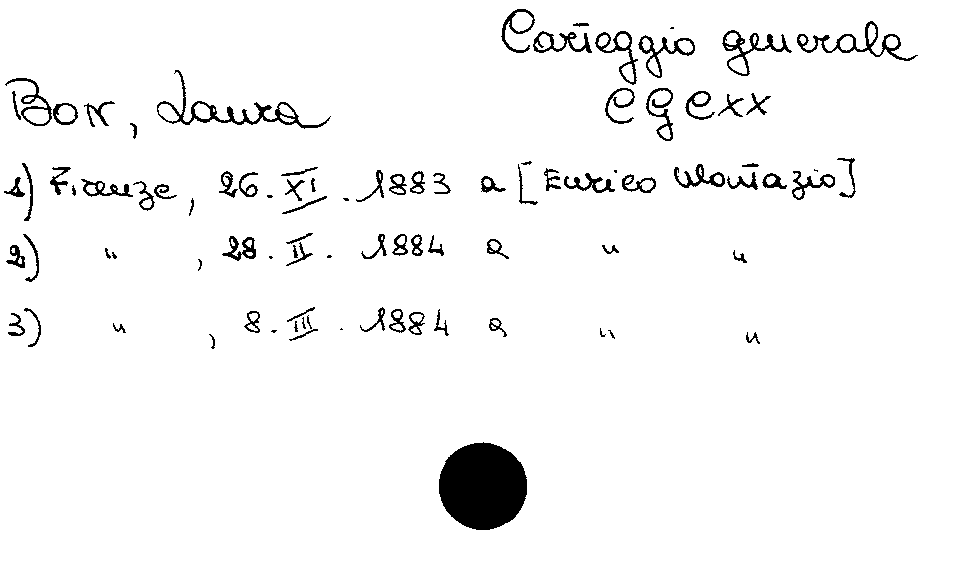 Carteggio generale
Bon, Laura
CG CXX
1) Firenze, 26.XI.1883 a [Enrico Montazio]
2) " , 28.II.1884 a " "
3) " , 8.III.1884 a " "